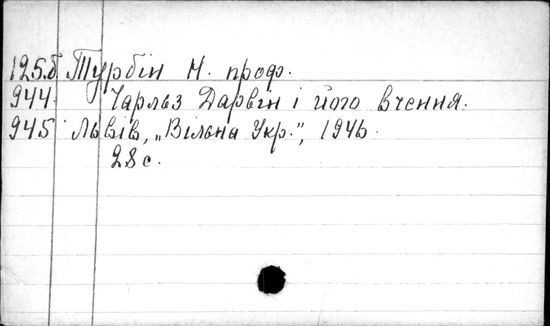 125.б Турбін Н. проф.
944. Чарльз Дарвін і його вчення.
945 Львів, „Вільна Укр.", 1946.
28 с.